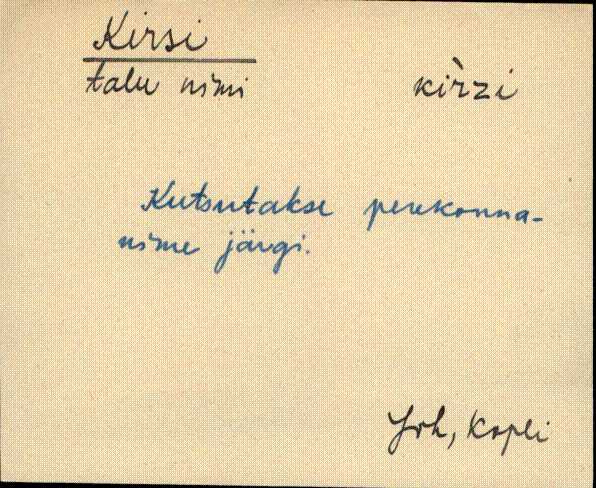 Kirsi
talu nimi kìrzi
Kutsutakse perekonna-
nime järgi.
Joh, Kopli